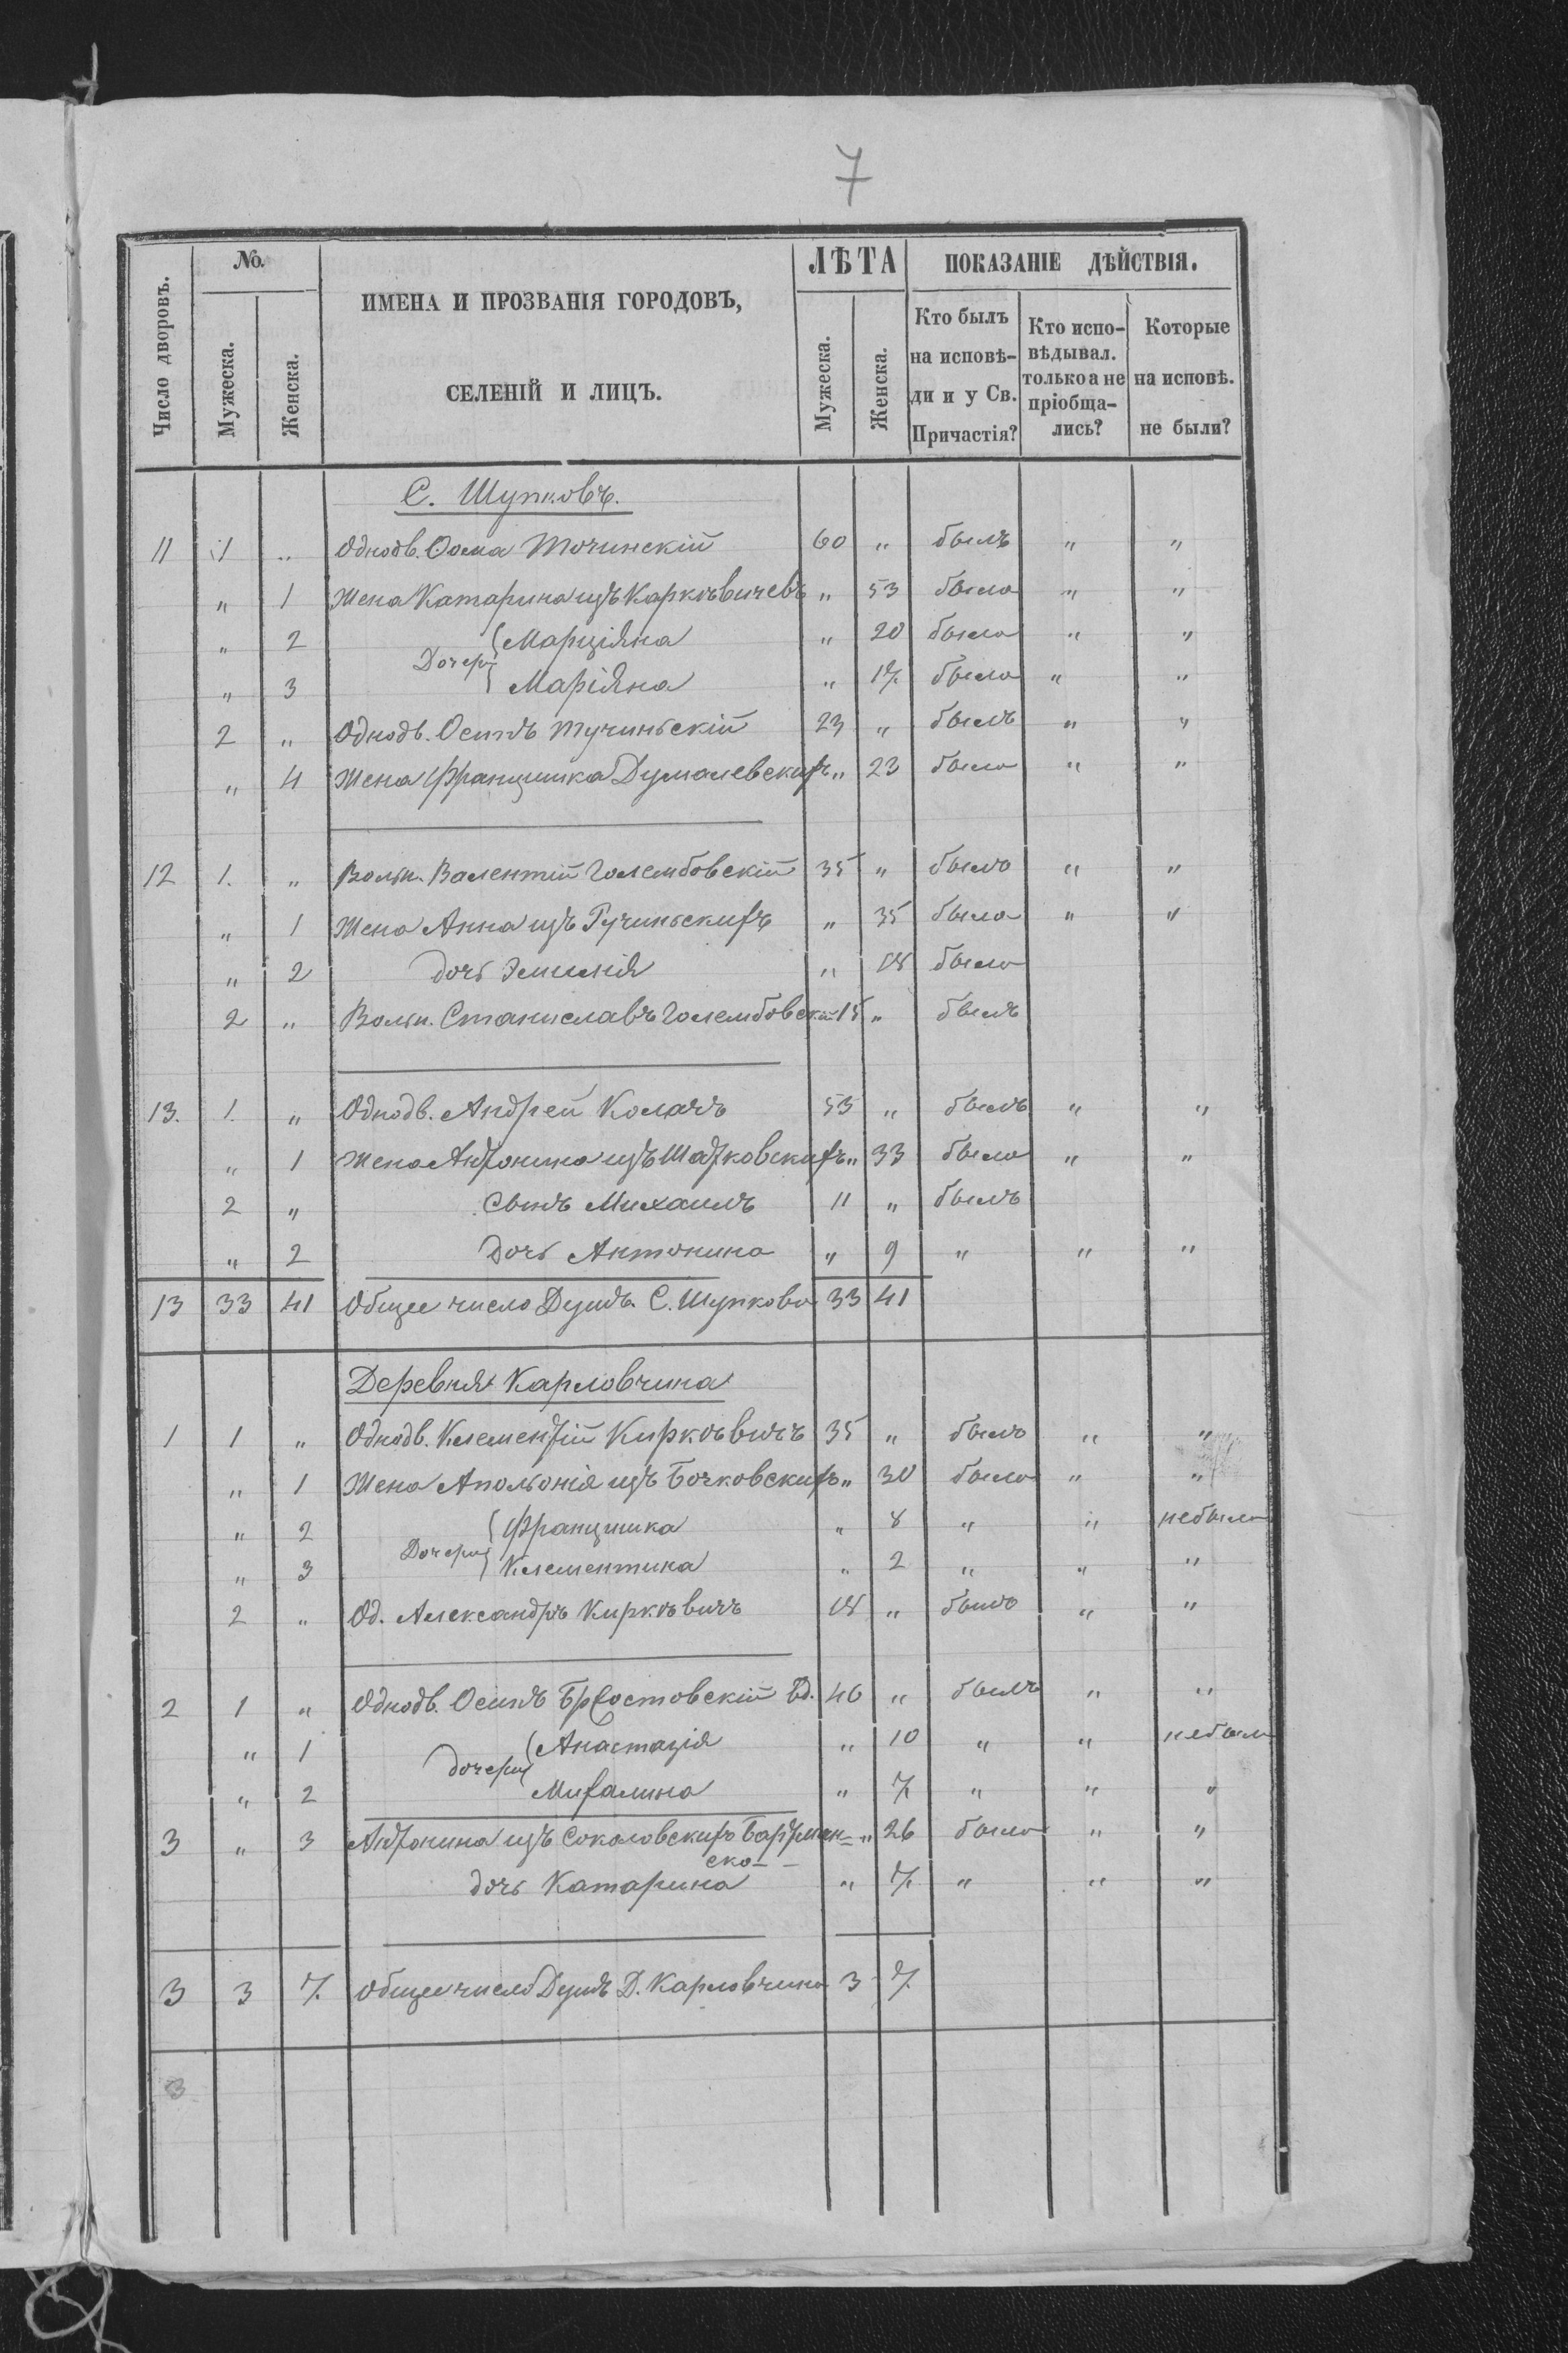 7
Число дворовъ. No. Мужеска. Женска. ИМЕНА И ПРОЗВАНІЯ ГОРОДОВЪ, СЕЛЕНІЙ И ЛИЦЪ. ЛѢТА Мужеска. Женска. ПОКАЗАНІЕ ДѢЙСТВІЯ. Кто былъ на исповѣ-ди и у Св. Причастія? Кто испо-вѣдывал. только а не пріобща-лись? Которые на исповѣ. не были?
С. Шупковъ.
11 1 „ Однодв. Ѳома Точинскій 60 „ былъ „ „
„ 1 Жена Катарина изъ Каркѣвичевъ „ 53 была „ „
„ 2 Дочери { Марціяна „ 20 была „ „
„ 3 Маріяна „ 17 была „ „
2 „ Однодв. Осипъ Тучиньскій 23 „ былъ „ „
„ 4 Жена Францишка Думалевскихъ „ 23 была „ „
12 1. „ Вольн. Валентій Голембовскій 35 „ былъ „ „
„ 1 Жена Анна изъ Ручиньскихъ „ 35 была „ „
„ 2 дочь Эмилія „ 18 была
2 „ Вольн. Станиславъ Голембовскій 15 „ былъ
13. 1. „ Однодв. Андрей Колачъ 53 „ былъ „ „
„ 1 Жена Антонина изъ Шатковскихъ „ 33 была „ „
2 „ Сынъ Михаилъ 11 „ былъ
„ 2 Дочь Антонина „ 9 „ „ „
13 33 41 Общее число Душъ С. Шупкова 33 41
Деревня Карловчина
1 1 „ Однодв. Клементій Киркѣвичъ 35 „ былъ „ „
„ 1 Жена Апольонія изъ Бочковскихъ „ 30 была „ „
„ 2 Дочери { Францишка „ 8 „ „ небыла
„ 3 Клементина „ 2 „ „ „
2 „ Од. Александръ Киркѣвичъ 18 „ былъ „ „
2 1 „ Однодв. Осипъ Вд. 46 „ былъ „ „
„ 1 дочери { Анастазія „ 10 „ „ небыла
„ 2 Михалина „ 7 „ „ „
3 „ 3 Антонина изъ Соколовскихъ „ 26 была „ „
ска
дочь Катарина „ 7 „ „ „
3 3 7 Общее число Душъ Д. Карловчина 3 7
3